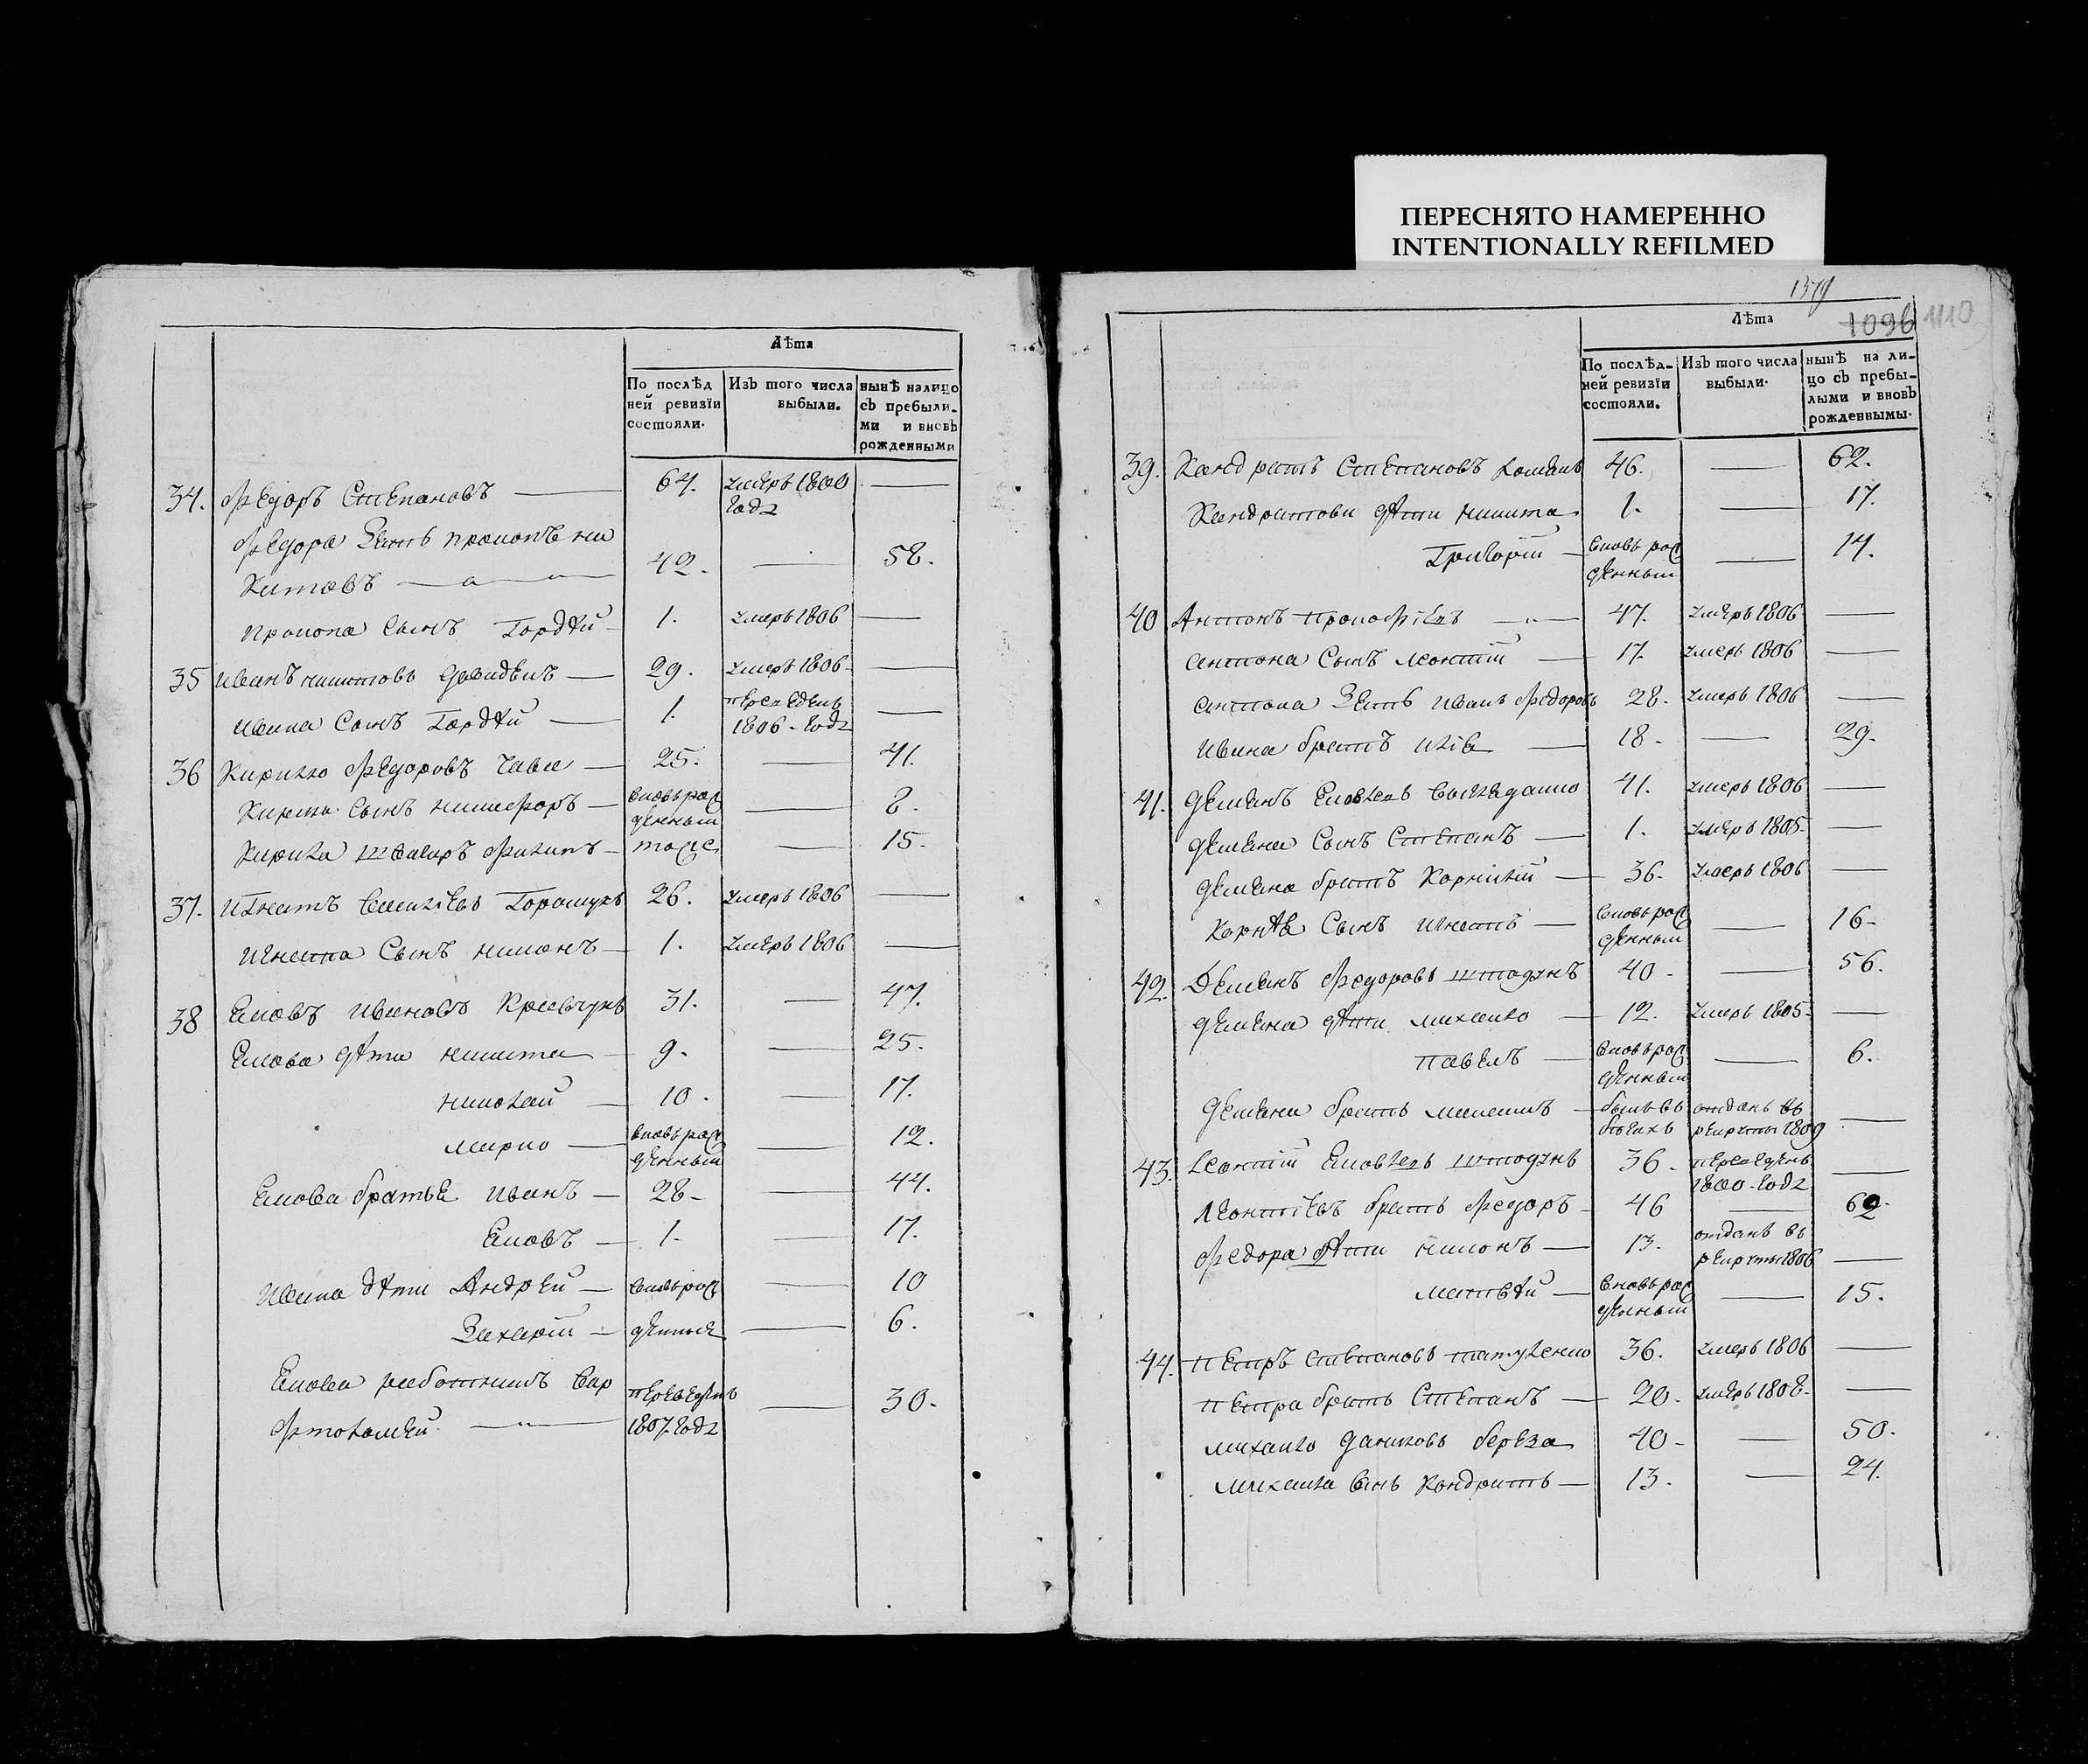 ПЕРЕСНЯТО НАМЕРЕННО
INTENTIONALLY REFILMED
Лѣта
По послѣд ней ревизїи состояли.
Изъ того числа выбыли.
нынѣ налицо съ пребылими и вновь рожденными
34. Федоръ Степановъ — 64. умеръ 1800 года —
Федора Зять прокопъ ни
китовъ — 42. — 58.
прокопа Сынъ Гордѣй — 1. умеръ 1806 —
35 Иванъ никитовъ — 29. умеръ 1806 —
Ивана Сынъ Гордѣй — 1. переведенъ 1806 года —
36 Кирило Федоровъ — 25. — 41.
Кирила Сынъ никифоръ — вновьрожденный — 8.
Кирила швагиръ Филипъ — тоже — 15.
37. Игнатъ 26. умеръ 1806 —
Игната Сынъ никонъ — 1. умеръ 1806 —
38 Яковъ Ивановъ Кравчукъ 31. — 47.
Якова дѣти никита — 9. — 25.
николай — 10. — 17.
марко — вновьрожденный — 12.
Якова братья Иванъ — 28 — 44.
Яковъ — 1. — 17.
Ивана дѣти Андрей — вновьрож — 10
Захарій — денныя — 6.
Якова работникъ вар
фтоломей — переведенъ 1807 года — 30.
1096 1110
Лѣта
По послѣдней ревизїи состояли.
Изъ того числа выбыли.
нынѣ на лицо съ пребылыми и вновь рожденнымы.
39. Кандратъ Степановъ 46. — 62.
Кандратови дѣти никита 1. — 17.
Григорій — вновь рожденный — 14.
40 Антонъ прокофіевъ — 47. умеръ 1806 —
антона Сынъ леонтій — 17. умеръ 1806 —
антона Зять Иванъ Федоровъ 28. умеръ 1806 —
Ивана братъ — 18. — 29.
41. демянъ Яковлевъ 41. умеръ 1806 —
демяна Сынъ Степанъ — 1. умеръ 1805 —
демяна братъ Корнілій — 36. умеръ 1806 —
Корнѣя Сынъ Игнатъ — вновь рожденный — 16.
42. Демянъ Федоровъ 40. — 56.
демяна дѣти михайло — 12. умеръ 1805 —
павелъ — вновьрожденный — 6.
демяна братъ — бывъ въ бѣгахъ отданъ въ рекруты 1809 —
43. Леонтій Яковлевъ 36. переведенъ 1800 года —
Леонтіевъ братъ Федоръ — 46 — 62.
Федора дѣти никонъ — 13. отданъ въ рекруты 1806 —
матвѣй — вновьрожденный — 15.
44. петръ степановъ 36. умеръ 1806 —
петра братъ Степанъ — 20. умеръ 1808 —
михайло даниловъ береза 40 — 50.
михайла Сынъ Кондратъ — 13. — 24.